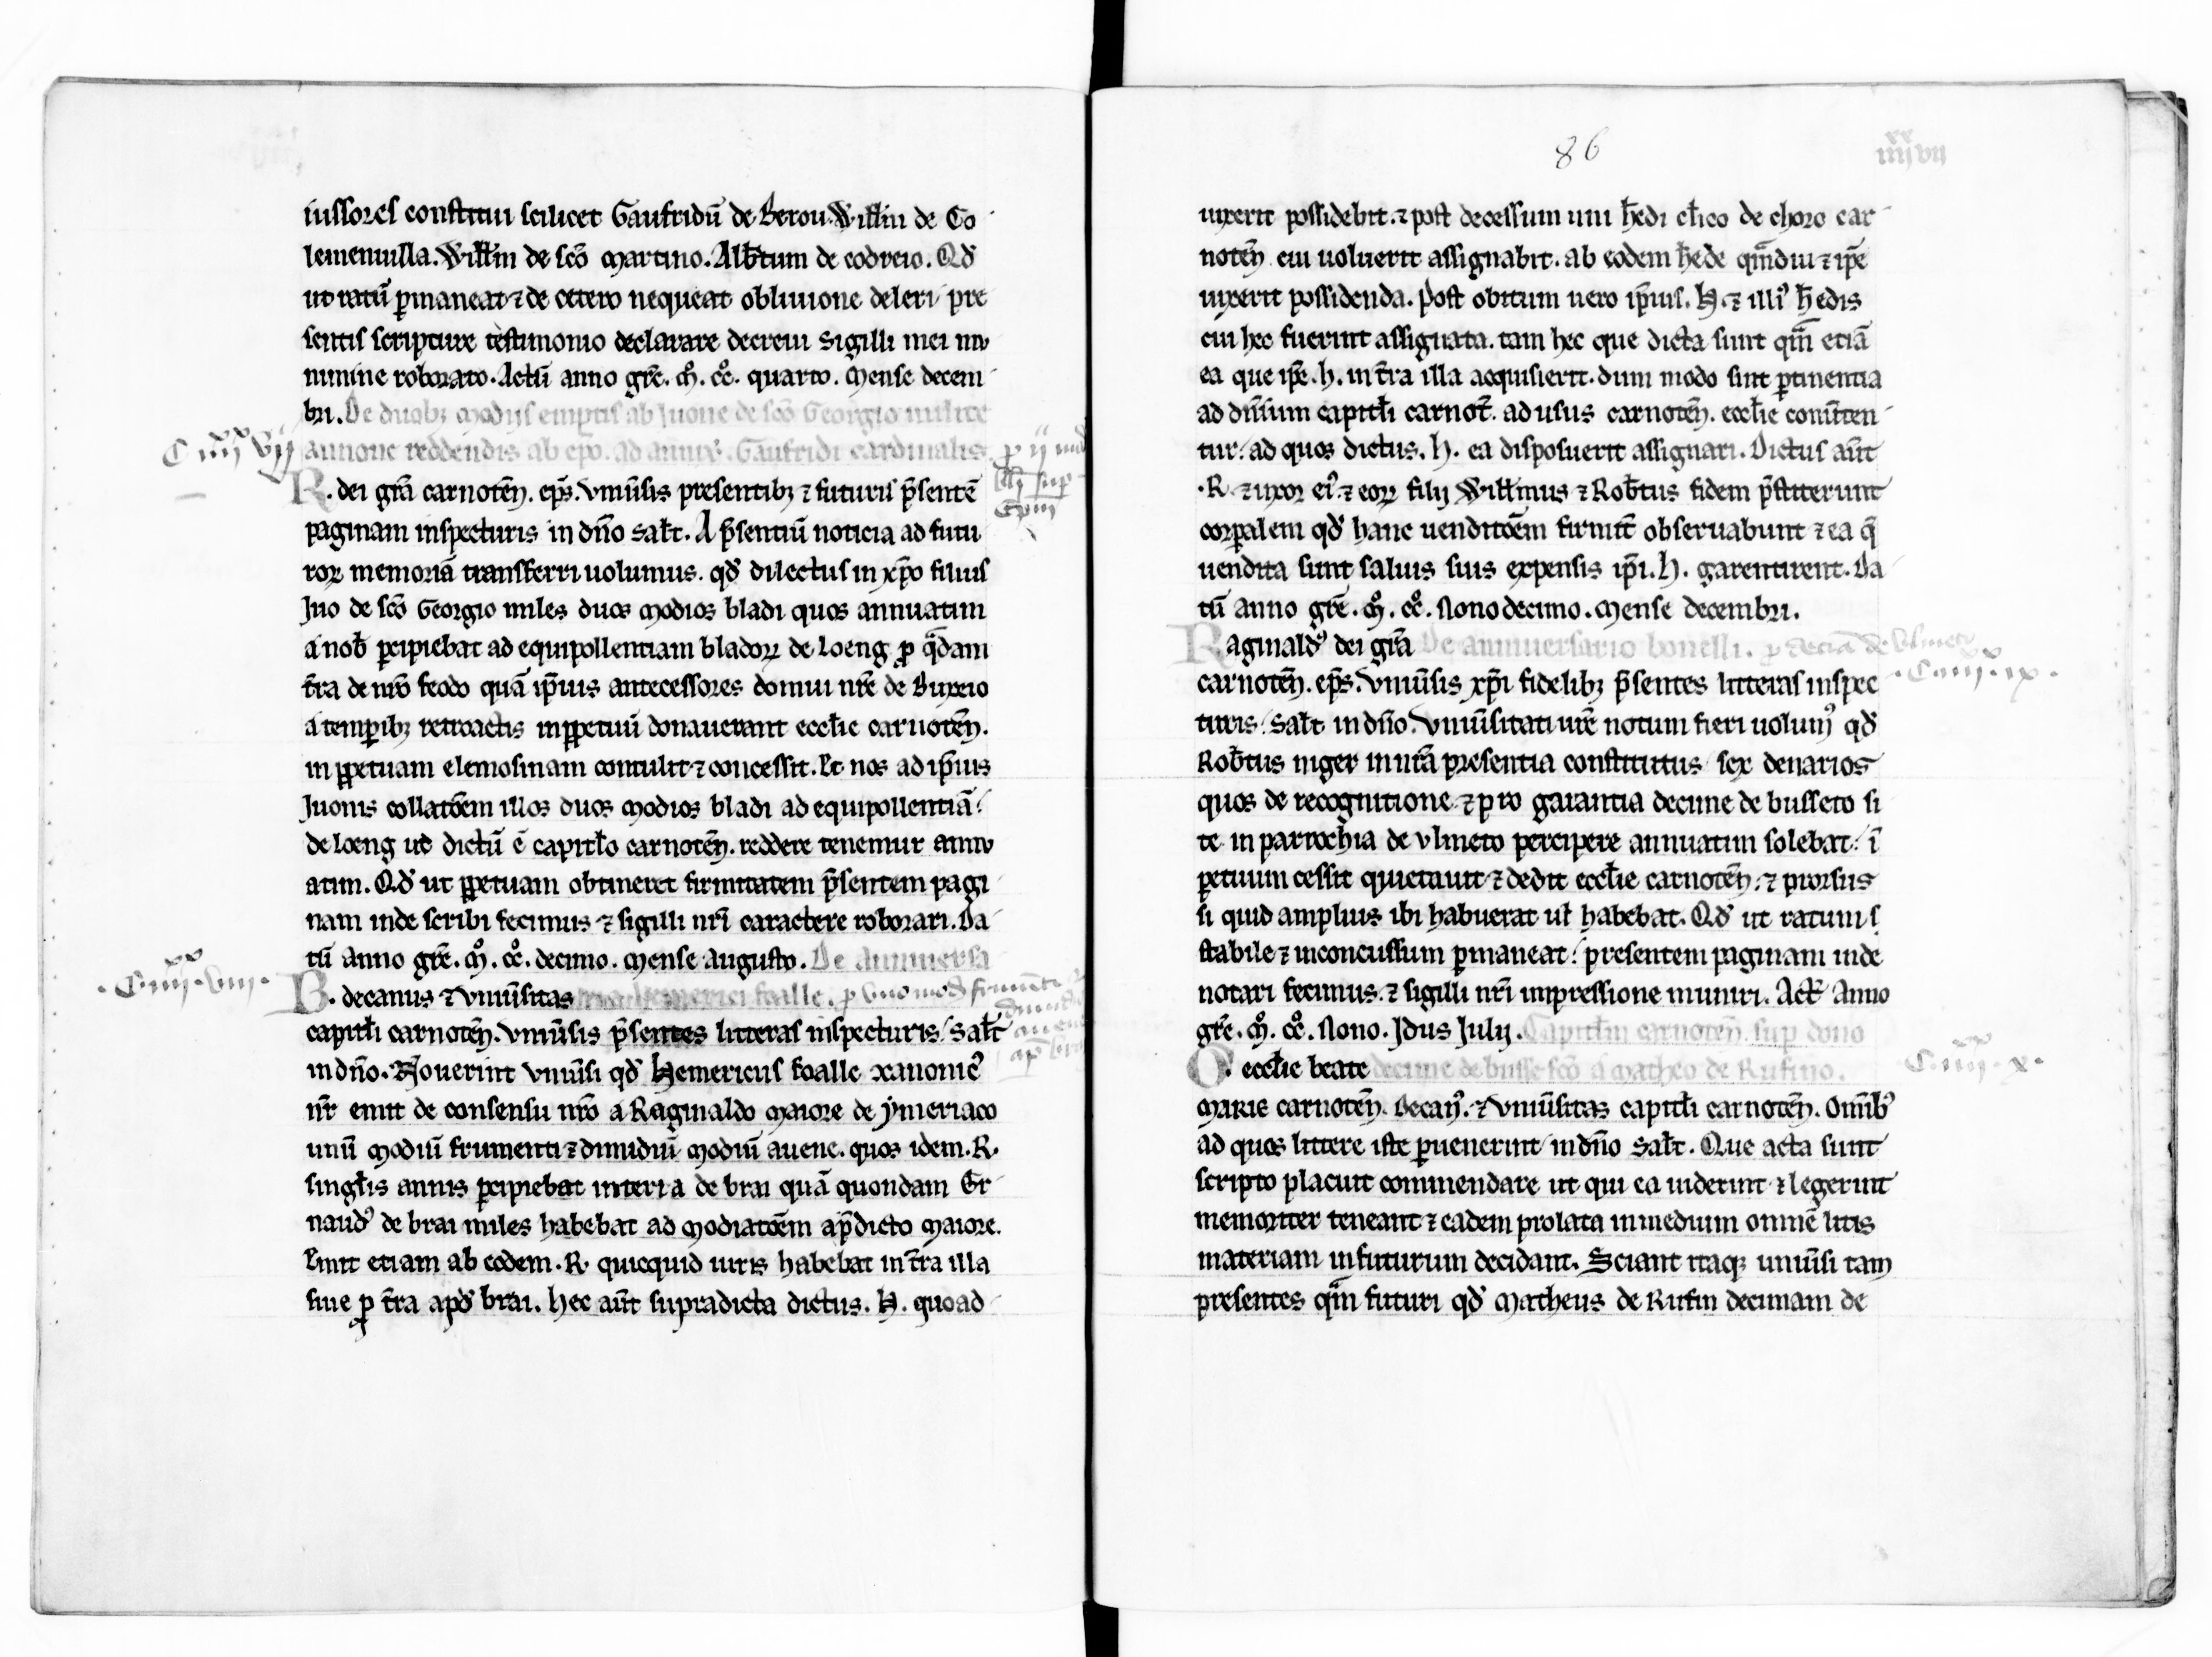 iussores constitui scilicet Gaufridū de Berou. Willm̄ de Co
lemeinuilla. Willm̄ de sc̄o martino. Alb̄tum de codreio. Qd̓
ut ratū p̱maneat ⁊ de cetero nequeat obliuione deleri / pre
sentis scripture testimonio declarare decreui sigilli mei mu
nimine roborato. Actū anno gr̄e. m̊. cc̊. quarto. mense decem
bri. De duab; modijs emptis ab Iuone de sc̄o Georgio milite
C iiij^xx vij
annone reddendis ab ep̄o. ad anniu̓. Gaufridi cardinalis.
R. dei gr̄a carnoteñ. ep̄s. vniūsis presentib; ⁊ futuris p̄sentē
paginam inspecturis in dn̄o salt̄. A p̄sentiū noticia ad futu
roꝝ memoriā transferri uolumus. qd̓ dilectus in xp̄o filius
Iuo de sc̄o Georgio miles duos modios bladi quos annuatim
a nob̄ p̱cipiebat ad equipollentiam bladoꝝ de Loeng ꝓ q̄dam
t̄ra de nr̄o feodo quā ip̄ius antecessores domui nr̄e de Buxeio
a temp̱ib; retroactis inpp̱etuū donauerant eccl̄ie carnoteñ.
in pp̱etuam elemosinam contulit ⁊ concessit. Et nos ad ip̄ius
Iuonis collatōem illos duos modios bladi ad equipollentiā /
de Loeng ut dictū ē capitl̄o carnoteñ. reddere tenemur annu
atim. Qd̓ ut pp̱etuam obtineret firmitatem p̄sentem pagi
nam inde scribi fecimus ⁊ sigilli nr̄i caractere roborari. Da
tū anno gr̄e. m̊. cc̊. decimo. mense augusto. De anniuersa
.C. iiij^xx. viii.
B. decanus ⁊ vniūsitas rio Hemerici foalle. ꝓ vno mod̓ frumēti
capitl̄i carnoteñ. vniūsis p̄sentes litteras inspecturis / salt̄
in dn̄o. Nouerint vniūsi qd̓ Hemericus foalle canonic̓
nr̄ emit de consensu nr̄o a Raginaldo maiore de ymeriaco
unū modiū frumenti ⁊ dimidiū modiū auene. quos idem. R.
singl̄is annis p̱cipiebat in terra de brai quā quondam Er
naud̓ de brai miles habebat ad modiatōem a p̄dicto maiore.
Emit etiam ab eodem. R. quicquid iuris habebat in t̄ra illa
siue ꝓ t̄ra apd̓ brai. hec aūt supradicta dictus. H. quoad
86
iiij^xx vii
uixerit possidebit. ⁊ post decessum uni h̄edi cl̄ico de choro car
noteñ cui uoluerit assignabit. ab eodem h̄ede qm̄diu ⁊ ip̄e
uixerit possidenda. Post obitum uero ip̄ius. H. ⁊ illi᾽ h̄edis
cui hec fuerint assignata. tam hec que dicta sunt qm̄ etiā
ea que ip̄e. h. in t̄ra illa acquisierit. dum modo sint p̱tinentia
ad dn̄ium capitl̄i carnot̄. ad usus carnoteñ. eccl̄ie conūten
tur / ad quos dictus. h. ea disposuerit assignari. Dictus aūt
.R. ⁊ uxor ei᾽. ⁊ eoꝝ filij Willmus ⁊ Rob̄tus fidem p̄stiterunt
corp̱alem qd̓ hanc uenditōem firmit̄ obseruabunt ⁊ ea q̄
uendita sunt saluis suis expensis ip̄i. h. garentirent. Da
tū anno gr̄e. m̊. cc̊. Nonodecimo. mense decembri.
Raginald᾽ dei gr̄a De anniuersario bonelli. ꝓ decia de vlmeto
carnoteñ. ep̄s. vniūsis xp̄i fidelib; p̄sentes litteras inspec
.C. iiij^xx. ix.
turis / salt̄ in dn̄o. vniūsitati ur̄e notum fieri uolum᾽ qd̓
Rob̄tus niger in nr̄a presentia constitutus / sex denarios
quos de recognitione ⁊ pro garantia decime de busseto si
te in parrochia de vlmeto percipere annuatim solebat / ī
p̱petuum cessit quietauit ⁊ dedit eccl̄ie carnoteñ. ⁊ prorsus
si quid amplius ibi habuerat ul̄ habebat. Qd̓ ut ratum ⁊
stabile ⁊ inconcussum p̱maneat / presentem paginam inde
notari fecimus. ⁊ sigilli nr̄i impressione muniri. Act̄ Anno
gr̄e. m̊. cc̊. Nono. Idus Iulij. Capitl̄m carnoteñ. sup̱ dono
O. eccl̄ie beate decime de busse fc̄o a matheo de Rufino.
.C. iiij^xx. x.
marie carnoteñ. decan᾽. ⁊ vniūsitas capitl̄i carnoteñ. Omīb᾽
ad quos littere iste p̱uenerint / in dn̄o salt̄. Que acta sunt
scripto placuit commendare ut qui ea uiderint ⁊ legerint
memoriter teneant ⁊ eadem prolata in medium omnē litis
materiam in futurum decidant. Sciant itaq; uniūsi tam
presentes qm̄ futuri qd̓ matheus de Rufin decimam de